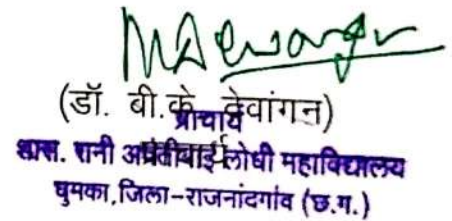 (डॉ. बी.के. देवांगन)
प्राचार्य
प्राचार्य
शास. रानी अवंतीबाई लोधी महाविद्यालय
घुमका, जिला-राजनांदगांव (छ.ग.)